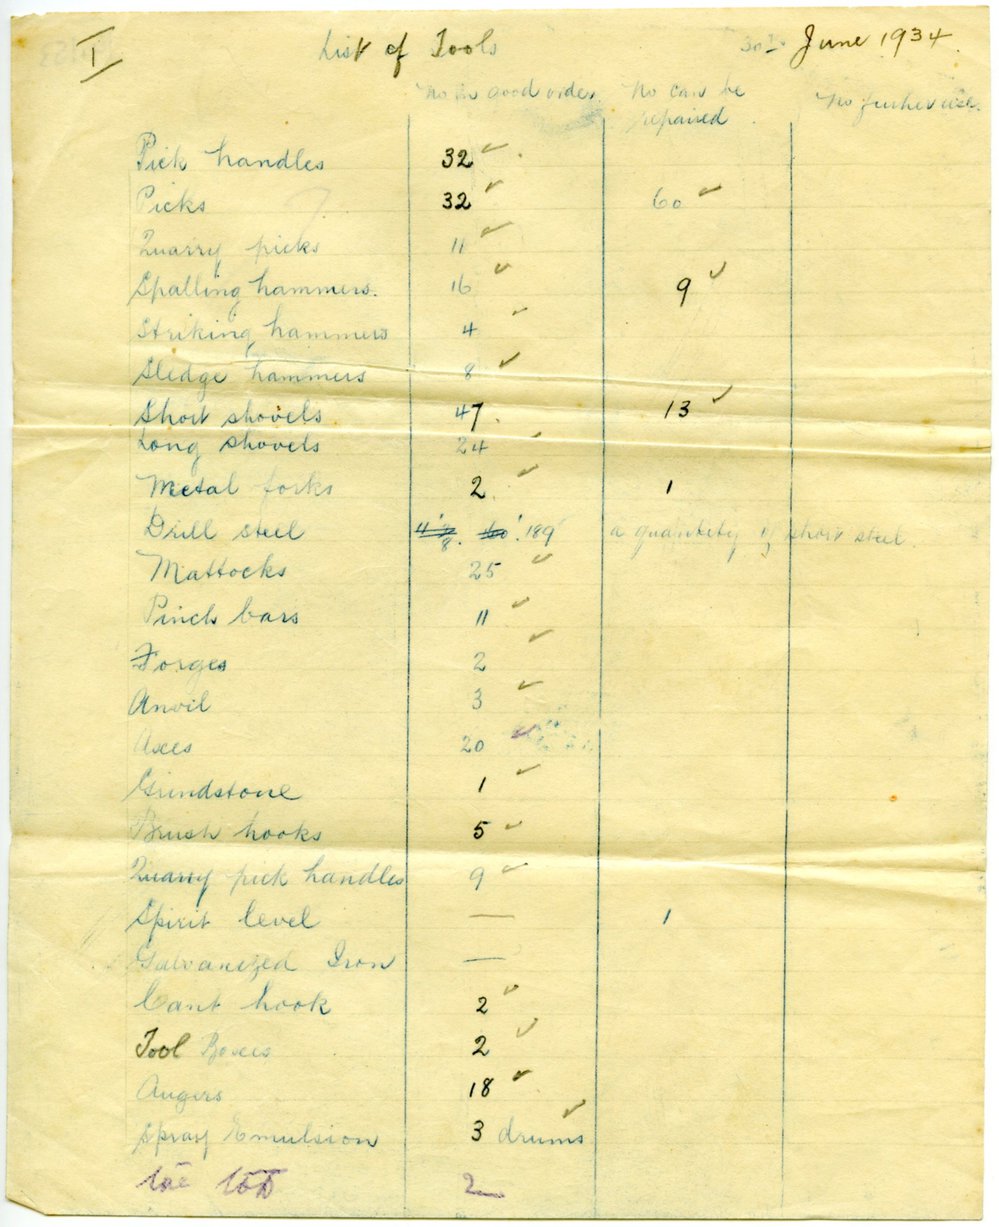 I List of Tools 30th June 1934
No in good order No can be repaired No further use.
Pick handles 32
Picks 32 60
Quarry picks 11
Spalling hammers. 16 9
Striking hammers 4
Sledge hammers 8
Short shovels 47. 13
Long shovels 24
Metal forks 2. 1
Drill steel 189' a quantity of short steel.
Mattocks 25
Pinch bars 11
Forges 2
Anvil 3
Axes 20
Grindstone 1
Brush hooks 5
Quarry pick handles 9
Spirit level — 1
Galvanized Iron —
Cant hook 2
Tool Boxes 2
Augers 18
Spray Emulsion 3 drums
2